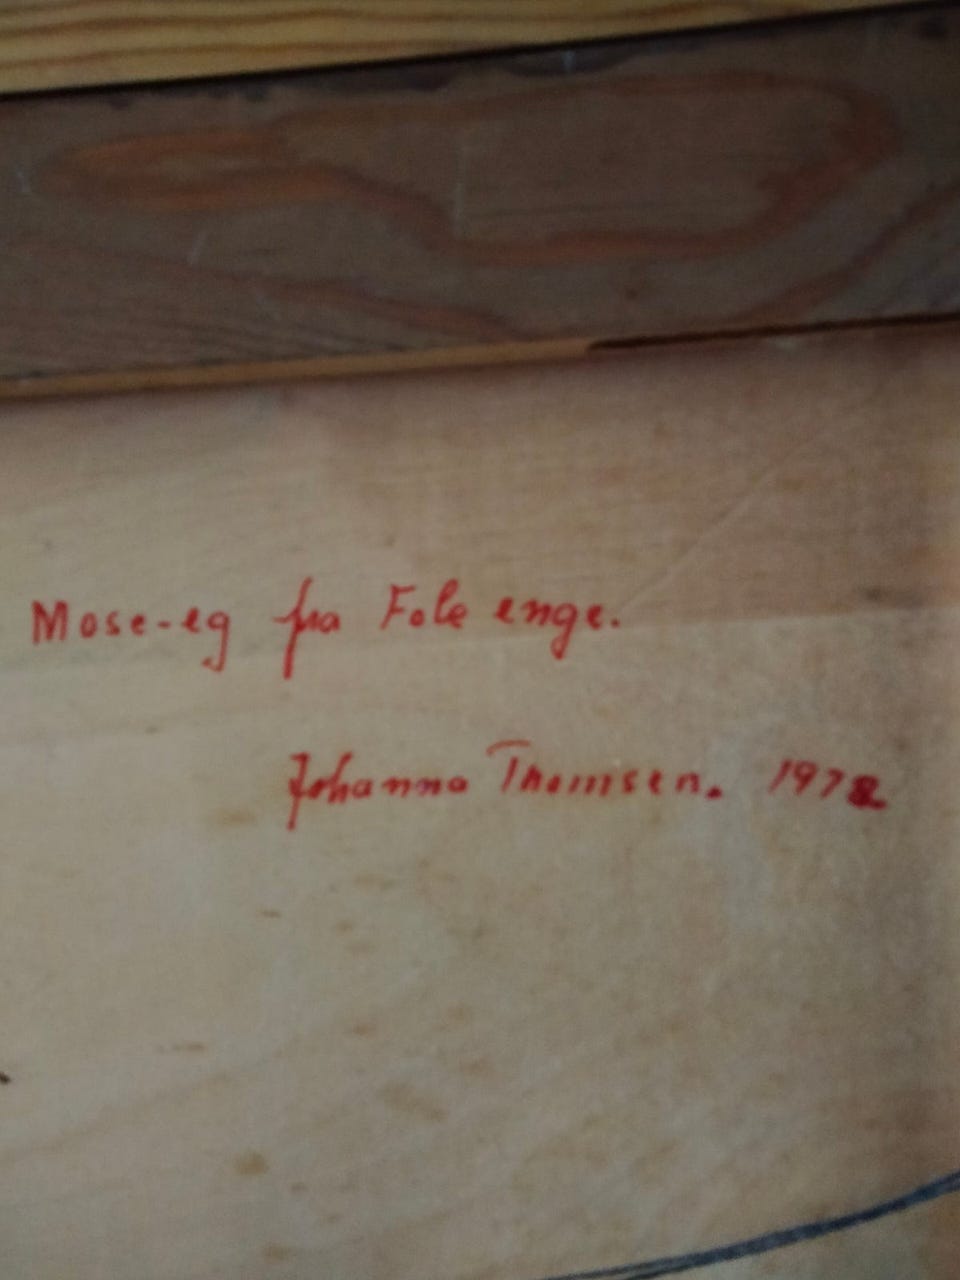 Mose-eg fra Fole enge.
Johanne Thomsen. 1978